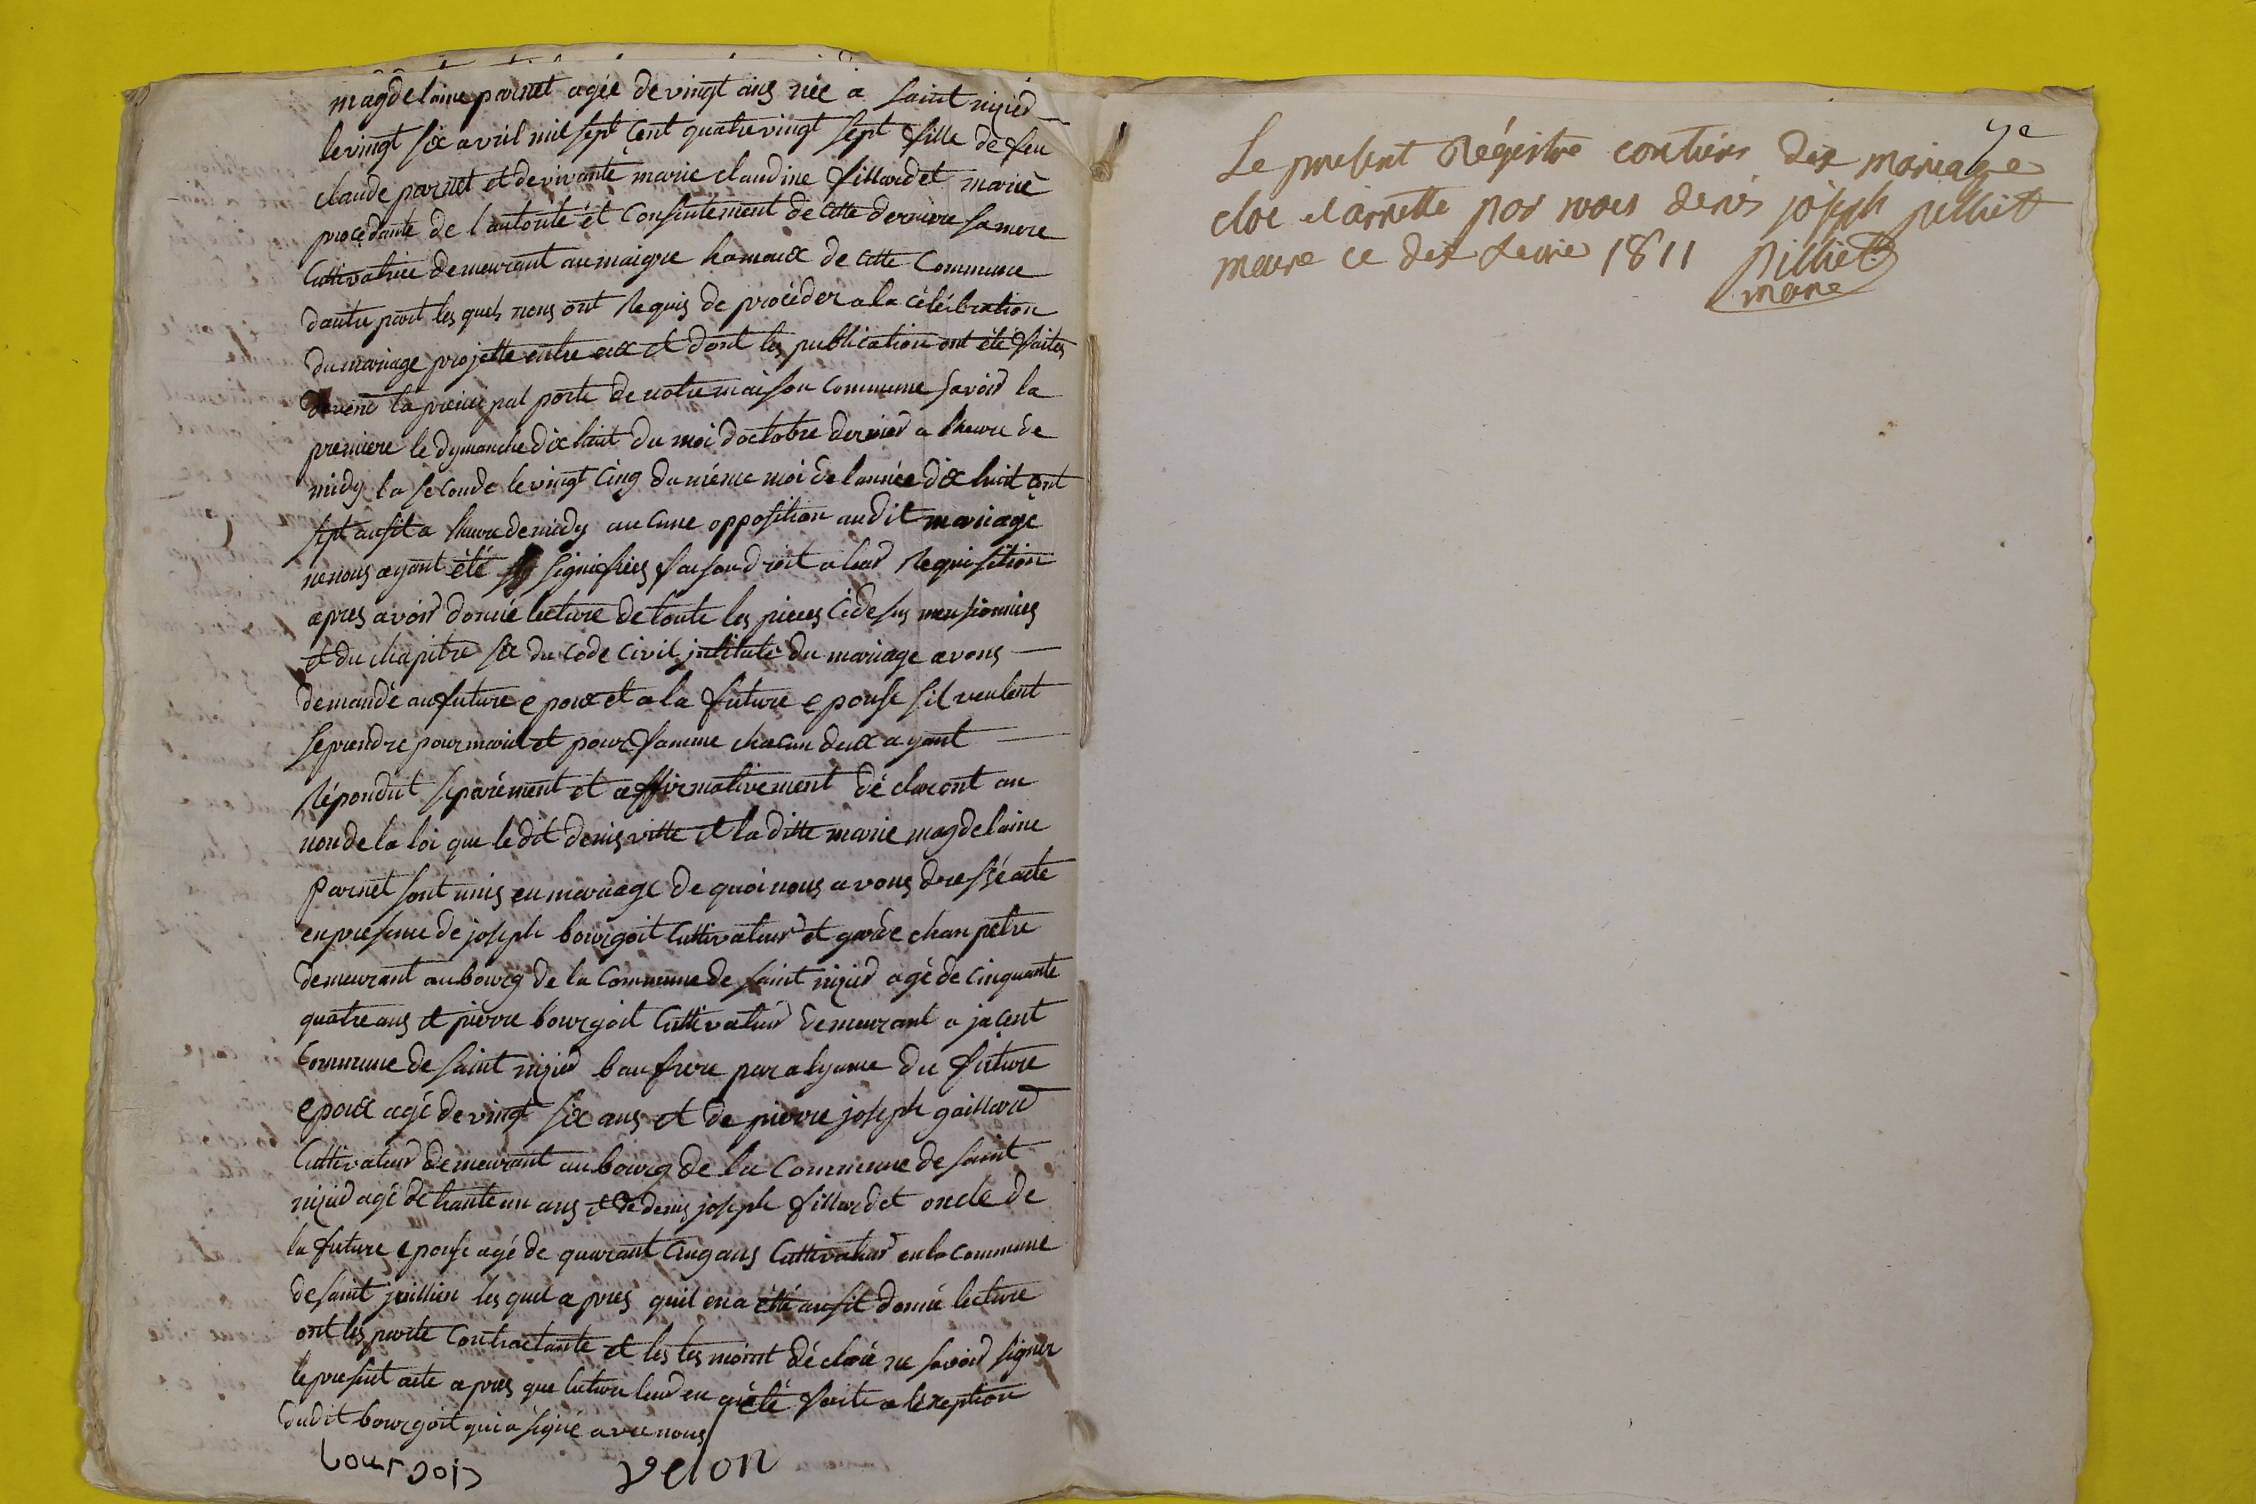 magdelaine parnet agée de vingt ans née a saint nizied
le vingt six avril mil sept cent quatre vingt sept fille de feu
claude parnet et de vivante marie claudine fillardet marie
procedante de l'autorité et consentement de cette derniere sa mere
Cultivatrice demeurant au maigre hamaux de cette Commune
dautre part les quels nous ont Requis de procéder a la célébration
du mariage projette entre eux et dont les publication ont été faites
devent la principal porte de notre maison commune savoir la
premiere le dymanche dix huit du moi d'octobre dernied a lheure de
midy la seconde le vingt cinq du même moi de lannée dix huit cent
sept ausit a lheure de midy aucune opposition audit mariage
ne nous ayant été signifiées faison droit a leur Requisition
apres avoir donnée lecture de toute les pieces cidesus mensionnies
et du chapitre six du code civil intitulé du mariage avons
demandé au future epoux et a la future epouse sil veulent
se prendre pour mari et pour famme chacun deux ayant
Répondut séparément et affirmativement déclaront au
non de la loi que le dit denis vitte et la ditte marie magdelaine
parnet sont unis en mariage de quoi nous avons dressé acte
en presence de joseph bourgoit Cultivateur et garde chanpetre
demeurant au bourg de la Commune de saint nizied agé de cinquante
quatre ans et pierre bourgoit Cultivateur demeurant a jacent
Commune de saint nizied baufrere par alyance du future
epoux agé de vingt six ans et de pierre joseph gaillard
Cultivateur demeurant au bourg de la Commune de saint
nizied agé de trante un ans et de denis joseph fillardet oncle de
la future epouse agé de quarant cinq ans Cultivateur en la commune
de saint juillien les quel apres quil en a été ausit donné lecture
ont les partie contractante et les tesmoint déclaré ne savoir signer
le present acte apres que lecture leur en a été faite a lexeption
dudit bourgoit qui a signé avec nous
bourgois velon
7e
Le present Régistre contien dix mariage
clot et arretté par nous denis joseph pilliet
maire ce dix fevrie 1811 Pilliet
maire